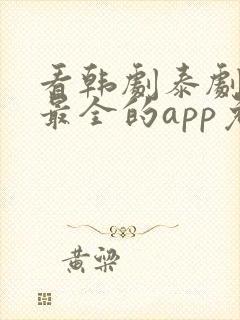 看韩剧泰剧
最全的app
黄梁